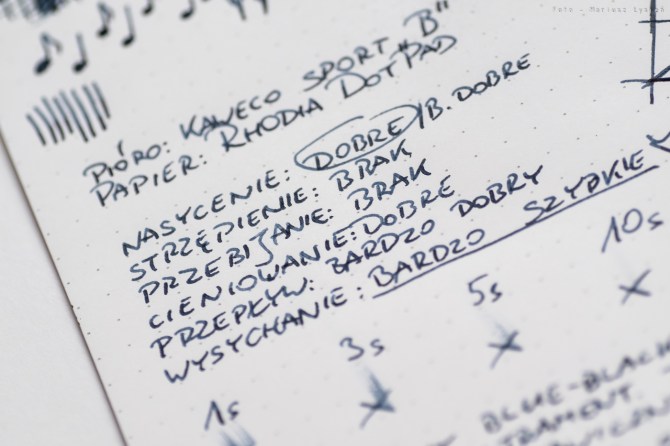 Foto - Mariusz
PIÓRO: KAWECO SPORT "B"
PAPIER: RHODIA DOTPAD
NASYCENIE: DOBRE/B. DOBRE
STRZĘPIENIE: BRAK
PRZEBIJANIE: BRAK
CIENIOWANIE: DOBRE
PRZEPŁYW: BARDZO DOBRY
WYSYCHANIE: BARDZO SZYBKIE
1s 3s 5s 10s
BLUE-BLACK